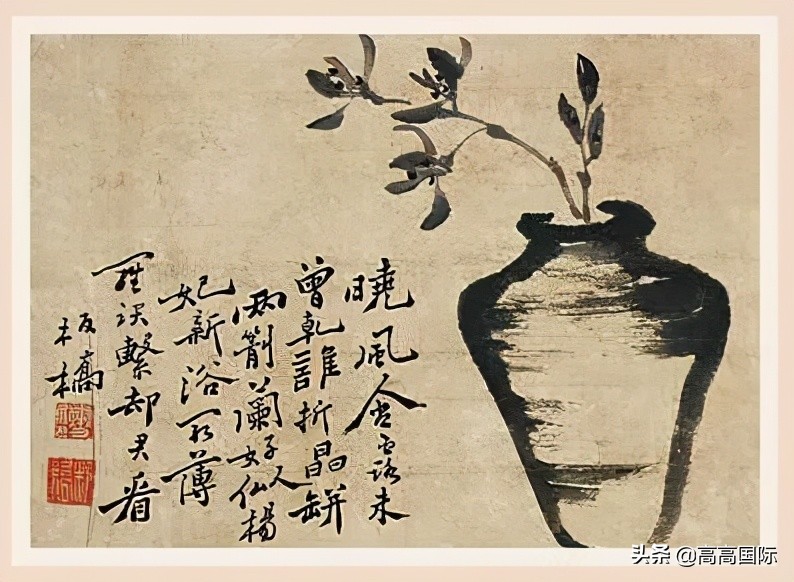 曉風含露未
曾乾誰折晶缾
兩箭蘭好似楊
妃新浴罷薄
羅繫却君看
板橋
头条 @高高国际